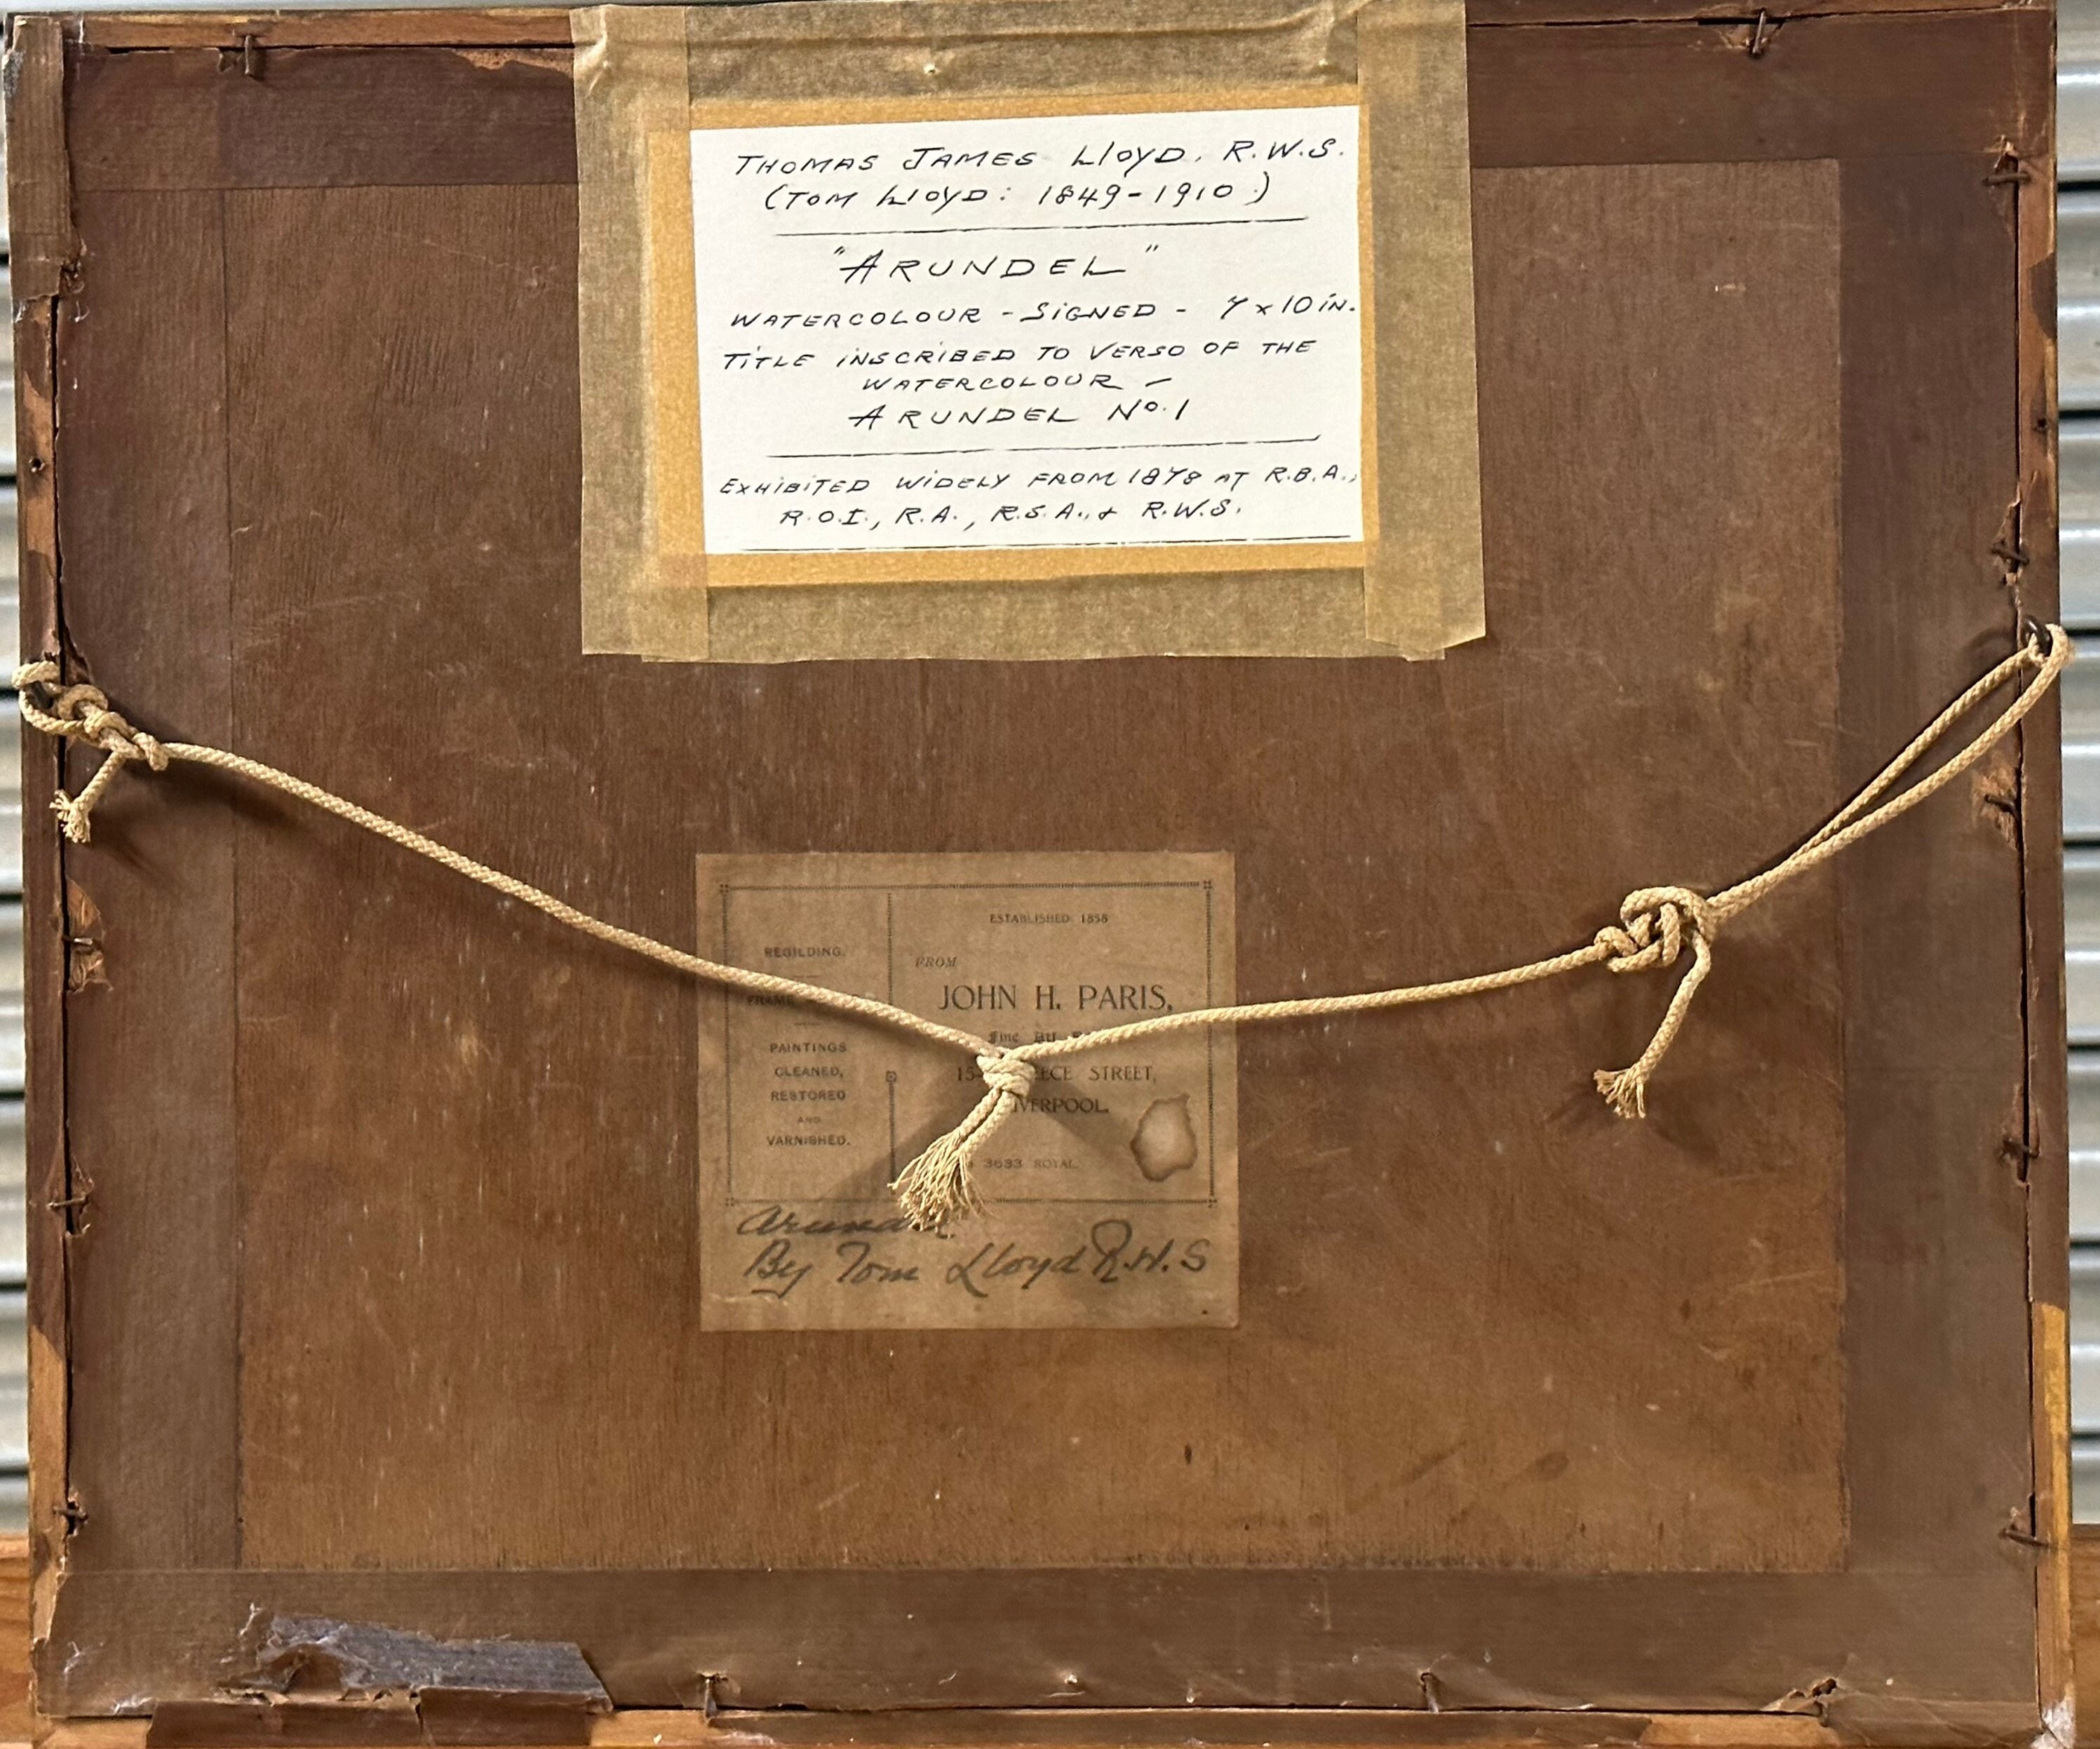 THOMAS JAMES LLOYD, R.W.S.
(TOM LLOYD: 1849-1910)
"ARUNDEL"
WATERCOLOUR - SIGNED - 7 x 10 IN.
TITLE INSCRIBED TO VERSO OF THE
WATERCOLOUR -
ARUNDEL No. 1
EXHIBITED WIDELY FROM 1878 AT R.B.A.,
R.O.I., R.A., R.S.A., & R.W.S.
REGILDING.
FRAME
PAINTINGS
CLEANED,
RESTORED
AND
VARNISHED.
ESTABLISHED 1858
FROM
JOHN H. PARIS,
Fine Art
STREET,
3633 ROYAL.
By Tom Lloyd R.W.S